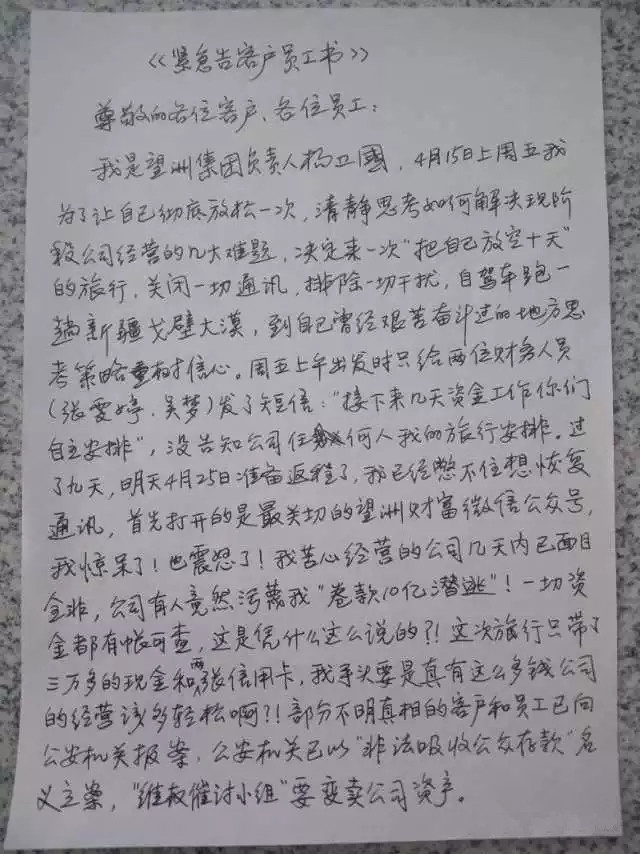 《紧急告客户员工书》
尊敬的各位客户、各位员工：
我是望洲集团负责人杨卫國，4月15日上周五我
为了让自己彻底放松一次，清静思考如何解决现阶
段公司经营的几大难题，决定来一次"把自己放空十天"
的旅行，关闭一切通讯，排除一切干扰，自驾车跑一
趟新疆戈壁大漠，到自己曾经艰苦奋斗过的地方思
考策略重树信心。周五上午出发时只给两位财务人员
(张雯婷、吴梦)发了短信："接下来几天资金工作你们
自主安排"，没告知公司任何人我的旅行安排。过
了九天，明天4月25日准备返程了，我已经憋不住想恢复
通讯，首先打开的是最关切的望洲财富微信公众号，
我惊呆了！也震怒了！我苦心经营的公司几天内已面目
全非，公司有人竟然污蔑我"卷款10亿潜逃"！一切资
金都有帐可查，这是凭什么这么说的?！这次旅行只带了
三万多的现金和两张信用卡，我手头要是真有这么多钱公司
的经营该多轻松啊?！部分不明真相的客户和员工已向
公安机关报案，公安机关已以"非法吸收公众存款"名
义立案，"维权催讨小组"要变卖公司资产。